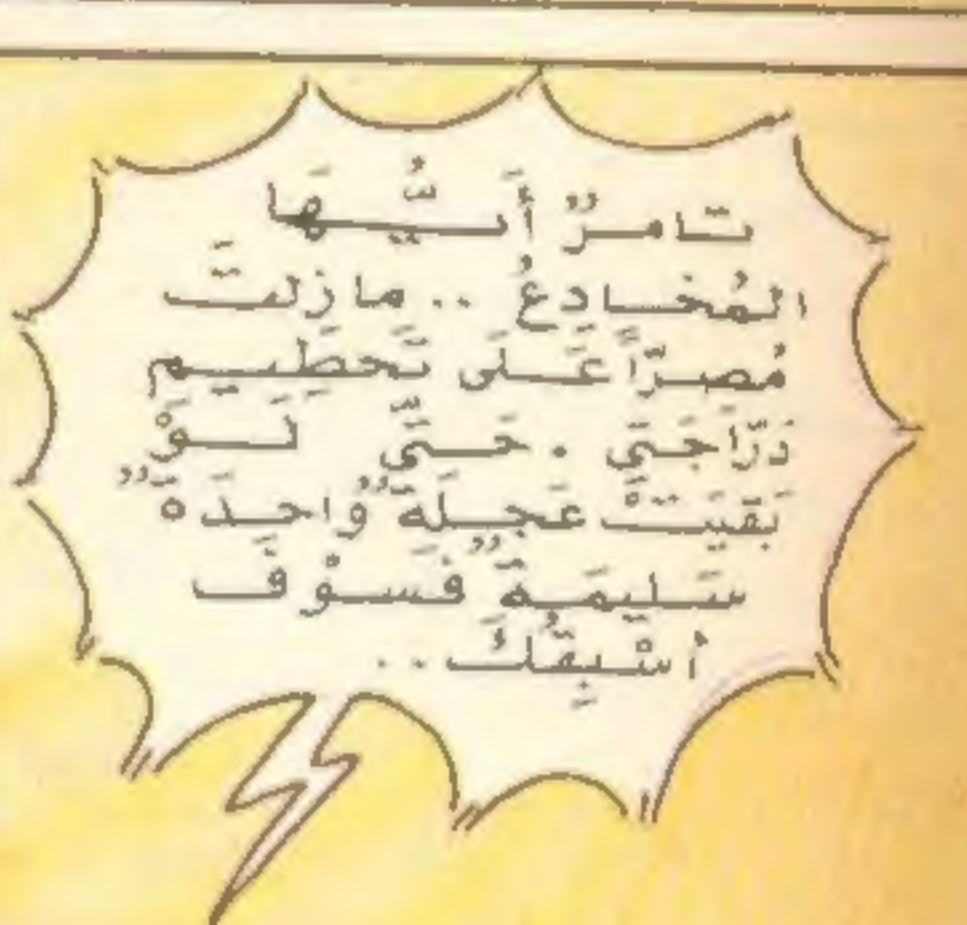 تَامرٌ أَيُّهَا
المُخادِعُ .. مازلتَ
مُصرّاً عَلَى تَحطِيم
دَرّاجَتِي . حَتَّى لَوْ
بَقيَتْ عَجلَةٌ واحدَةٌ
سَليمَةٌ فَسوْفَ
أسْبِقُكَ ..